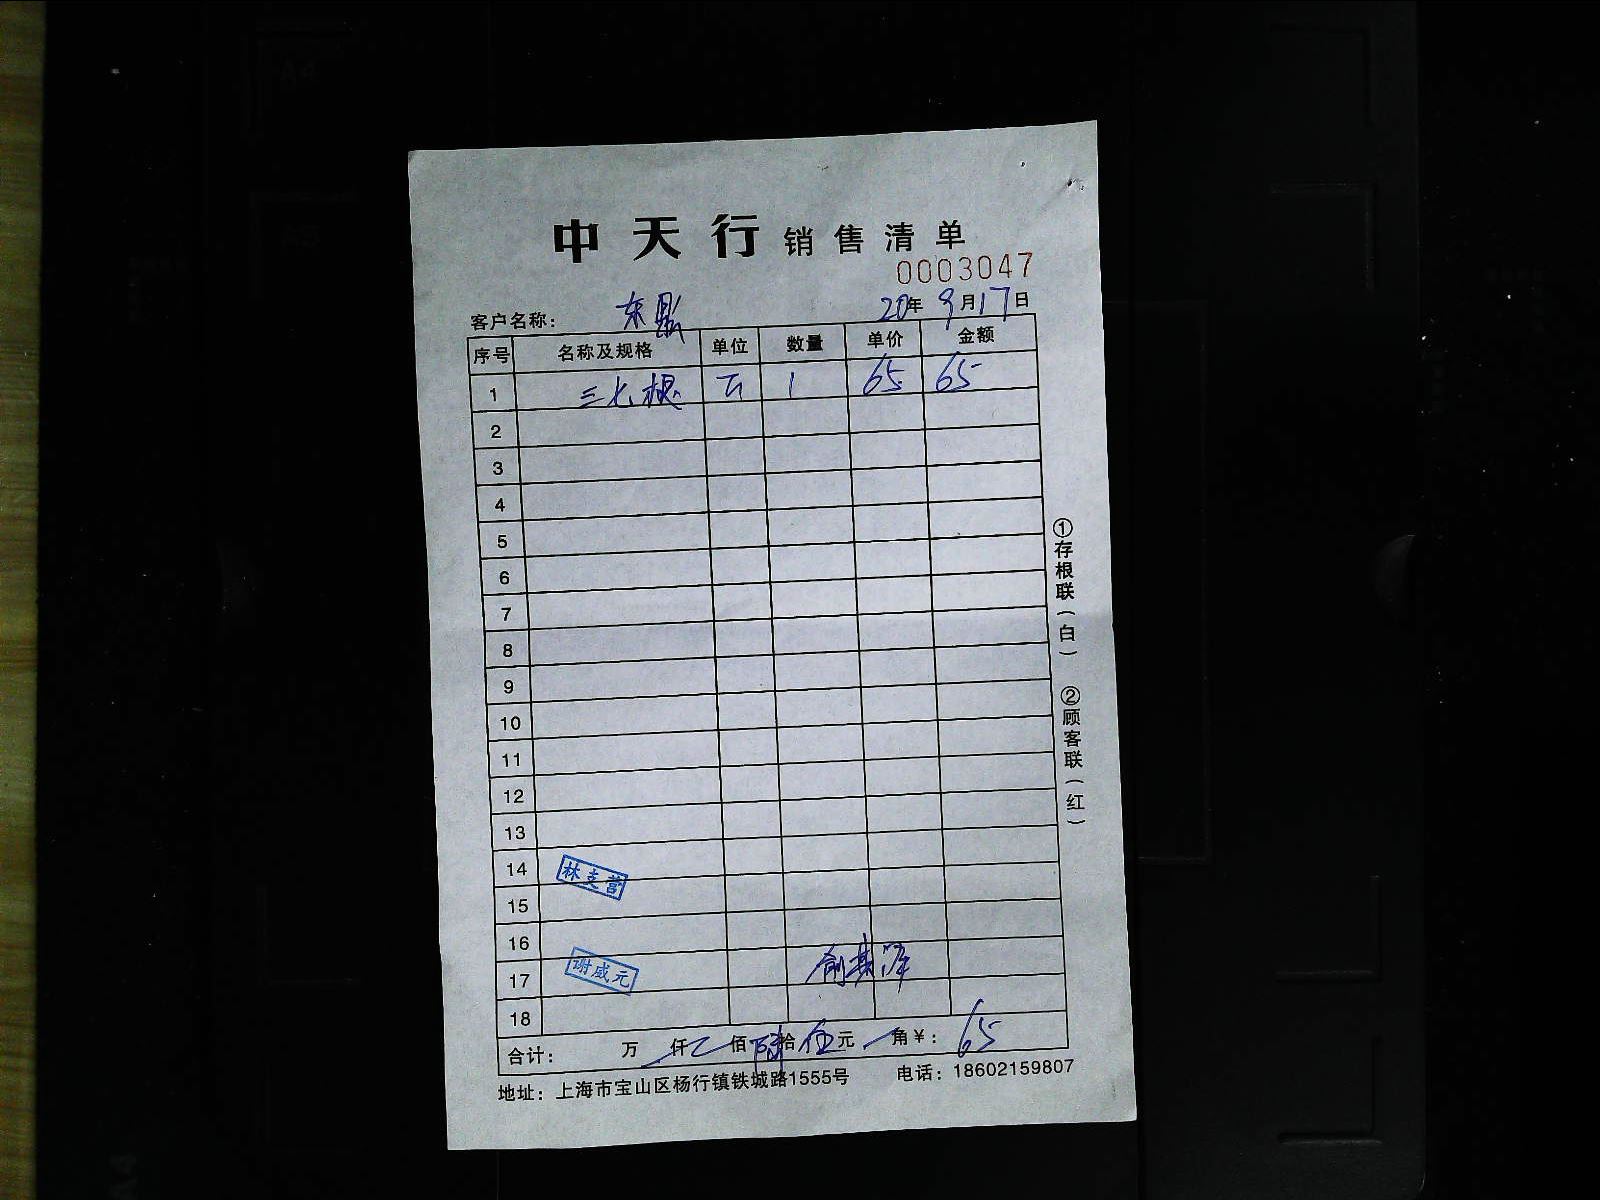 中天行销售清单
0003047
客户名称： 东鼎 20年9月17日
序号 名称及规格 单位 数量 单价 金额
1 三七根 1 65 65
2
3
4
5
6
7
8
9
10
11
12
13
14 林支营
15
16
17 谢威元 俞其泽
18
合计： 万 仟 佰 陆拾 伍元 角￥： 65
地址：上海市宝山区杨行镇铁城路1555号 电话：18602159807
①存根联（白） ②顾客联（红）